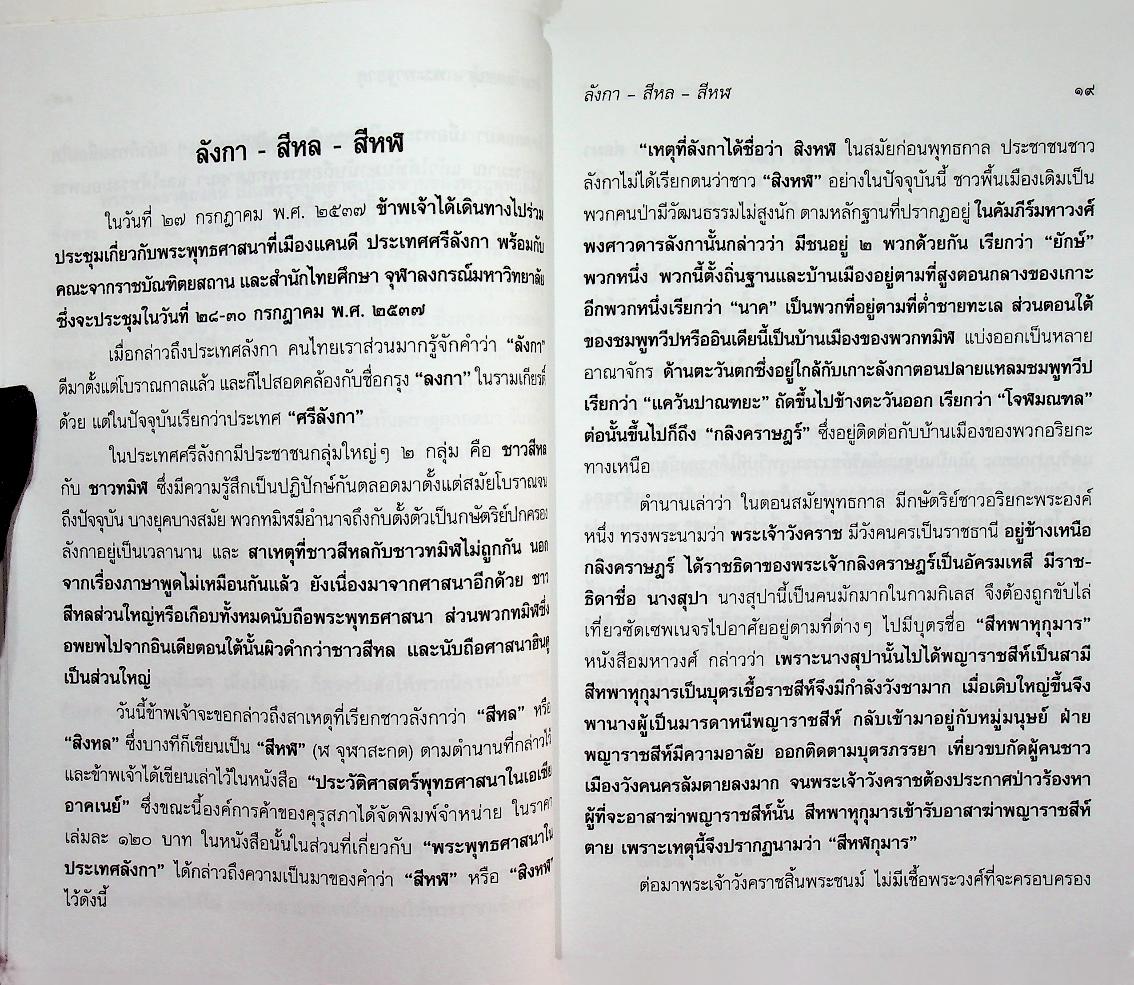 ลังกา - สีหล - สีหฬ
ในวันที่ ๒๗ กรกฎาคม พ.ศ. ๒๕๓๗ ข้าพเจ้าได้เดินทางไปร่วม
ประชุมเกี่ยวกับพระพุทธศาสนาที่เมืองแคนดี ประเทศศรีลังกา พร้อมกับ
คณะจากราชบัณฑิตยสถาน และสำนักไทยศึกษา จุฬาลงกรณ์มหาวิทยาลัย
ซึ่งจะประชุมในวันที่ ๒๘-๓๐ กรกฎาคม พ.ศ. ๒๕๓๗
เมื่อกล่าวถึงประเทศลังกา คนไทยเราส่วนมากรู้จักคำว่า “ลังกา”
ดีมาตั้งแต่โบราณกาลแล้ว และก็ไปสอดคล้องกับชื่อกรุง “ลงกา” ในรามเกียรติ์
ด้วย แต่ในปัจจุบันเรียกว่าประเทศ “ศรีลังกา”
ในประเทศศรีลังกามีประชาชนกลุ่มใหญ่ๆ ๒ กลุ่ม คือ ชาวสีหล
กับ ชาวทมิฬ ซึ่งมีความรู้สึกเป็นปฏิปักษ์กันตลอดมาตั้งแต่สมัยโบราณจน
ถึงปัจจุบัน บางยุคบางสมัย พวกทมิฬมีอำนาจถึงกับตั้งตัวเป็นกษัตริย์ปกครอง
ลังกาอยู่เป็นเวลานาน และ สาเหตุที่ชาวสีหลกับชาวทมิฬไม่ถูกกัน นอก
จากเรื่องภาษาพูดไม่เหมือนกันแล้ว ยังเนื่องมาจากศาสนาอีกด้วย ชาว
สีหลส่วนใหญ่หรือเกือบทั้งหมดนับถือพระพุทธศาสนา ส่วนพวกทมิฬซึ่ง
อพยพไปจากอินเดียตอนใต้นั้นผิวดำกว่าชาวสีหล และนับถือศาสนาฮินดู
เป็นส่วนใหญ่
วันนี้ข้าพเจ้าจะขอกล่าวถึงสาเหตุที่เรียกชาวลังกาว่า “สีหล” หรือ
“สิงหล” ซึ่งบางทีก็เขียนเป็น “สีหฬ” (ฬ จุฬาสะกด) ตามตำนานที่กล่าวไว้
และข้าพเจ้าได้เขียนเล่าไว้ในหนังสือ “ประวัติศาสตร์พุทธศาสนาในเอเซีย
อาคเนย์” ซึ่งขณะนี้องค์การค้าของคุรุสภาได้จัดพิมพ์จำหน่าย ในราคา
เล่มละ ๑๒๐ บาท ในหนังสือนั้นในส่วนที่เกี่ยวกับ “พระพุทธศาสนาใน
ประเทศลังกา” ได้กล่าวถึงความเป็นมาของคำว่า “สีหฬ” หรือ “สิงหฬ”
ไว้ดังนี้
ลังกา - สีหล - สีหฬ ๑๙
“เหตุที่ลังกาได้ชื่อว่า สิงหฬ ในสมัยก่อนพุทธกาล ประชาชนชาว
ลังกาไม่ได้เรียกตนว่าชาว “สิงหฬ” อย่างในปัจจุบันนี้ ชาวพื้นเมืองเดิมเป็น
พวกคนป่ามีวัฒนธรรมไม่สูงนัก ตามหลักฐานที่ปรากฏอยู่ ในคัมภีร์มหาวงศ์
พงศาวดารลังกานั้นกล่าวว่า มีชนอยู่ ๒ พวกด้วยกัน เรียกว่า “ยักษ์”
พวกหนึ่ง พวกนี้ตั้งถิ่นฐานและบ้านเมืองอยู่ตามที่สูงตอนกลางของเกาะ
อีกพวกหนึ่งเรียกว่า “นาค” เป็นพวกที่อยู่ตามที่ต่ำชายทะเล ส่วนตอนใต้
ของชมพูทวีปหรืออินเดียนี้เป็นบ้านเมืองของพวกทมิฬ แบ่งออกเป็นหลาย
อาณาจักร ด้านตะวันตกซึ่งอยู่ใกล้กับเกาะลังกาตอนปลายแหลมชมพูทวีป
เรียกว่า “แคว้นปาณฑยะ” ถัดขึ้นไปข้างตะวันออก เรียกว่า “โจฬมณฑล”
ต่อนั้นขึ้นไปก็ถึง “กลิงคราษฎร์” ซึ่งอยู่ติดต่อกับบ้านเมืองของพวกอริยกะ
ทางเหนือ
ตำนานเล่าว่า ในตอนสมัยพุทธกาล มีกษัตริย์ชาวอริยกะพระองค์
หนึ่ง ทรงพระนามว่า พระเจ้าวังคราช มีวังคนครเป็นราชธานี อยู่ข้างเหนือ
กลิงคราษฎร์ ได้ราชธิดาของพระเจ้ากลิงคราษฎร์เป็นอัครมเหสี มีราช-
ธิดาชื่อ นางสุปา นางสุปานี้เป็นคนมักมากในกามกิเลส จึงต้องถูกขับไล่
เที่ยวซัดเซพเนจรไปอาศัยอยู่ตามที่ต่างๆ ไปมีบุตรชื่อ “สีหพาหุกุมาร”
หนังสือมหาวงศ์ กล่าวว่า เพราะนางสุปานั้นไปได้พญาราชสีห์เป็นสามี
สีหพาหุกุมารเป็นบุตรเชื้อราชสีห์จึงมีกำลังวังชามาก เมื่อเติบใหญ่ขึ้นจึง
พานางผู้เป็นมารดาหนีพญาราชสีห์ กลับเข้ามาอยู่กับหมู่มนุษย์ ฝ่าย
พญาราชสีห์มีความอาลัย ออกติดตามบุตรภรรยา เที่ยวขบกัดผู้คนชาว
เมืองวังคนครล้มตายลงมาก จนพระเจ้าวังคราชต้องประกาศป่าวร้องหา
ผู้ที่จะอาสาฆ่าพญาราชสีห์นั้น สีหพาหุกุมารเข้ารับอาสาฆ่าพญาราชสีห์
ตาย เพราะเหตุนี้จึงปรากฏนามว่า “สีหฬกุมาร”
ต่อมาพระเจ้าวังคราชสิ้นพระชนม์ ไม่มีเชื้อพระวงศ์ที่จะครอบครอง